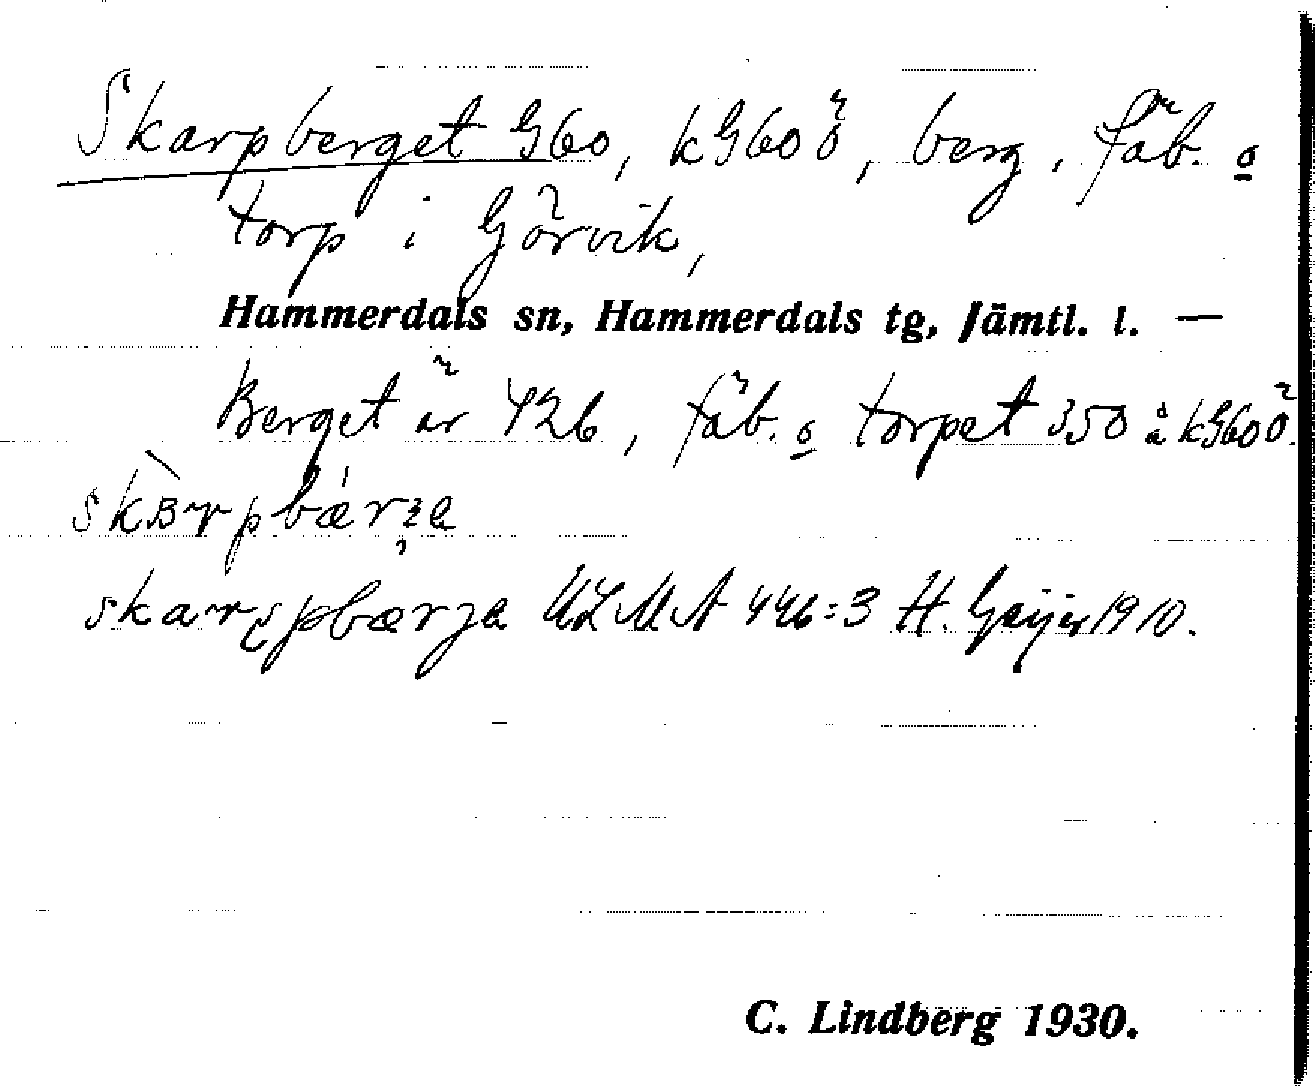 Skarpberget G60, kG60ö, berg, fäb. o
torp i Görvik,
Hammerdals sn, Hammerdals tg, Jämtl. l. —
Berget är 426, fäb. o torpet 350 å kG60ö.
H. Geijer 1910.
C. Lindberg 1930.